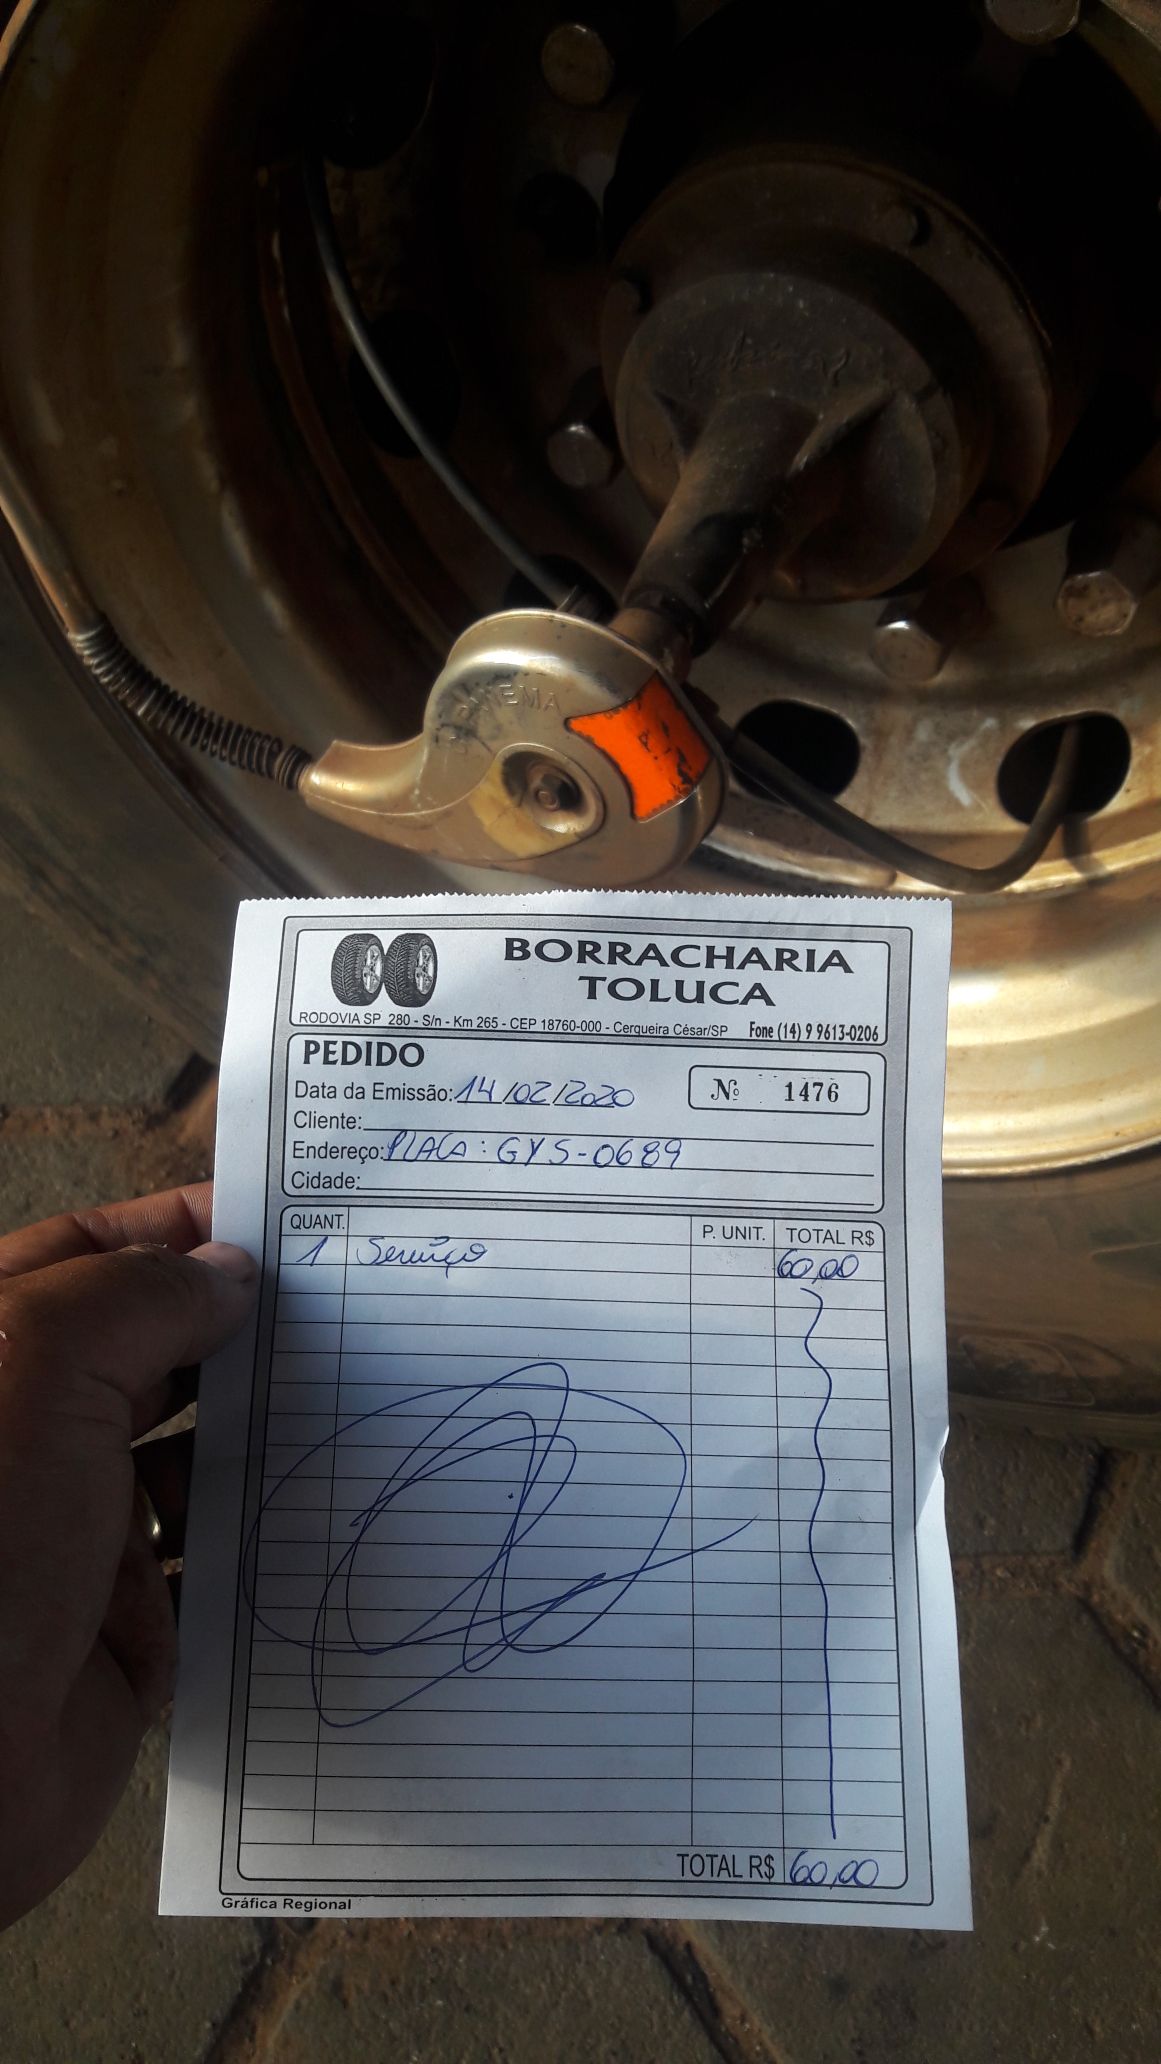 BORRACHARIA
TOLUCA
RODOVIA SP 280 - S/n - Km 265 - CEP 18760-000 - Cerqueira César/SP Fone (14) 9 9613-0206
PEDIDO
Data da Emissão: 14/02/2020 Nº 1476
Cliente:
Endereço: PLACA: GYS-0689
Cidade:
QUANT. P. UNIT. TOTAL R$
1 Serviço 60,00
TOTAL R$ 60,00
Gráfica Regional